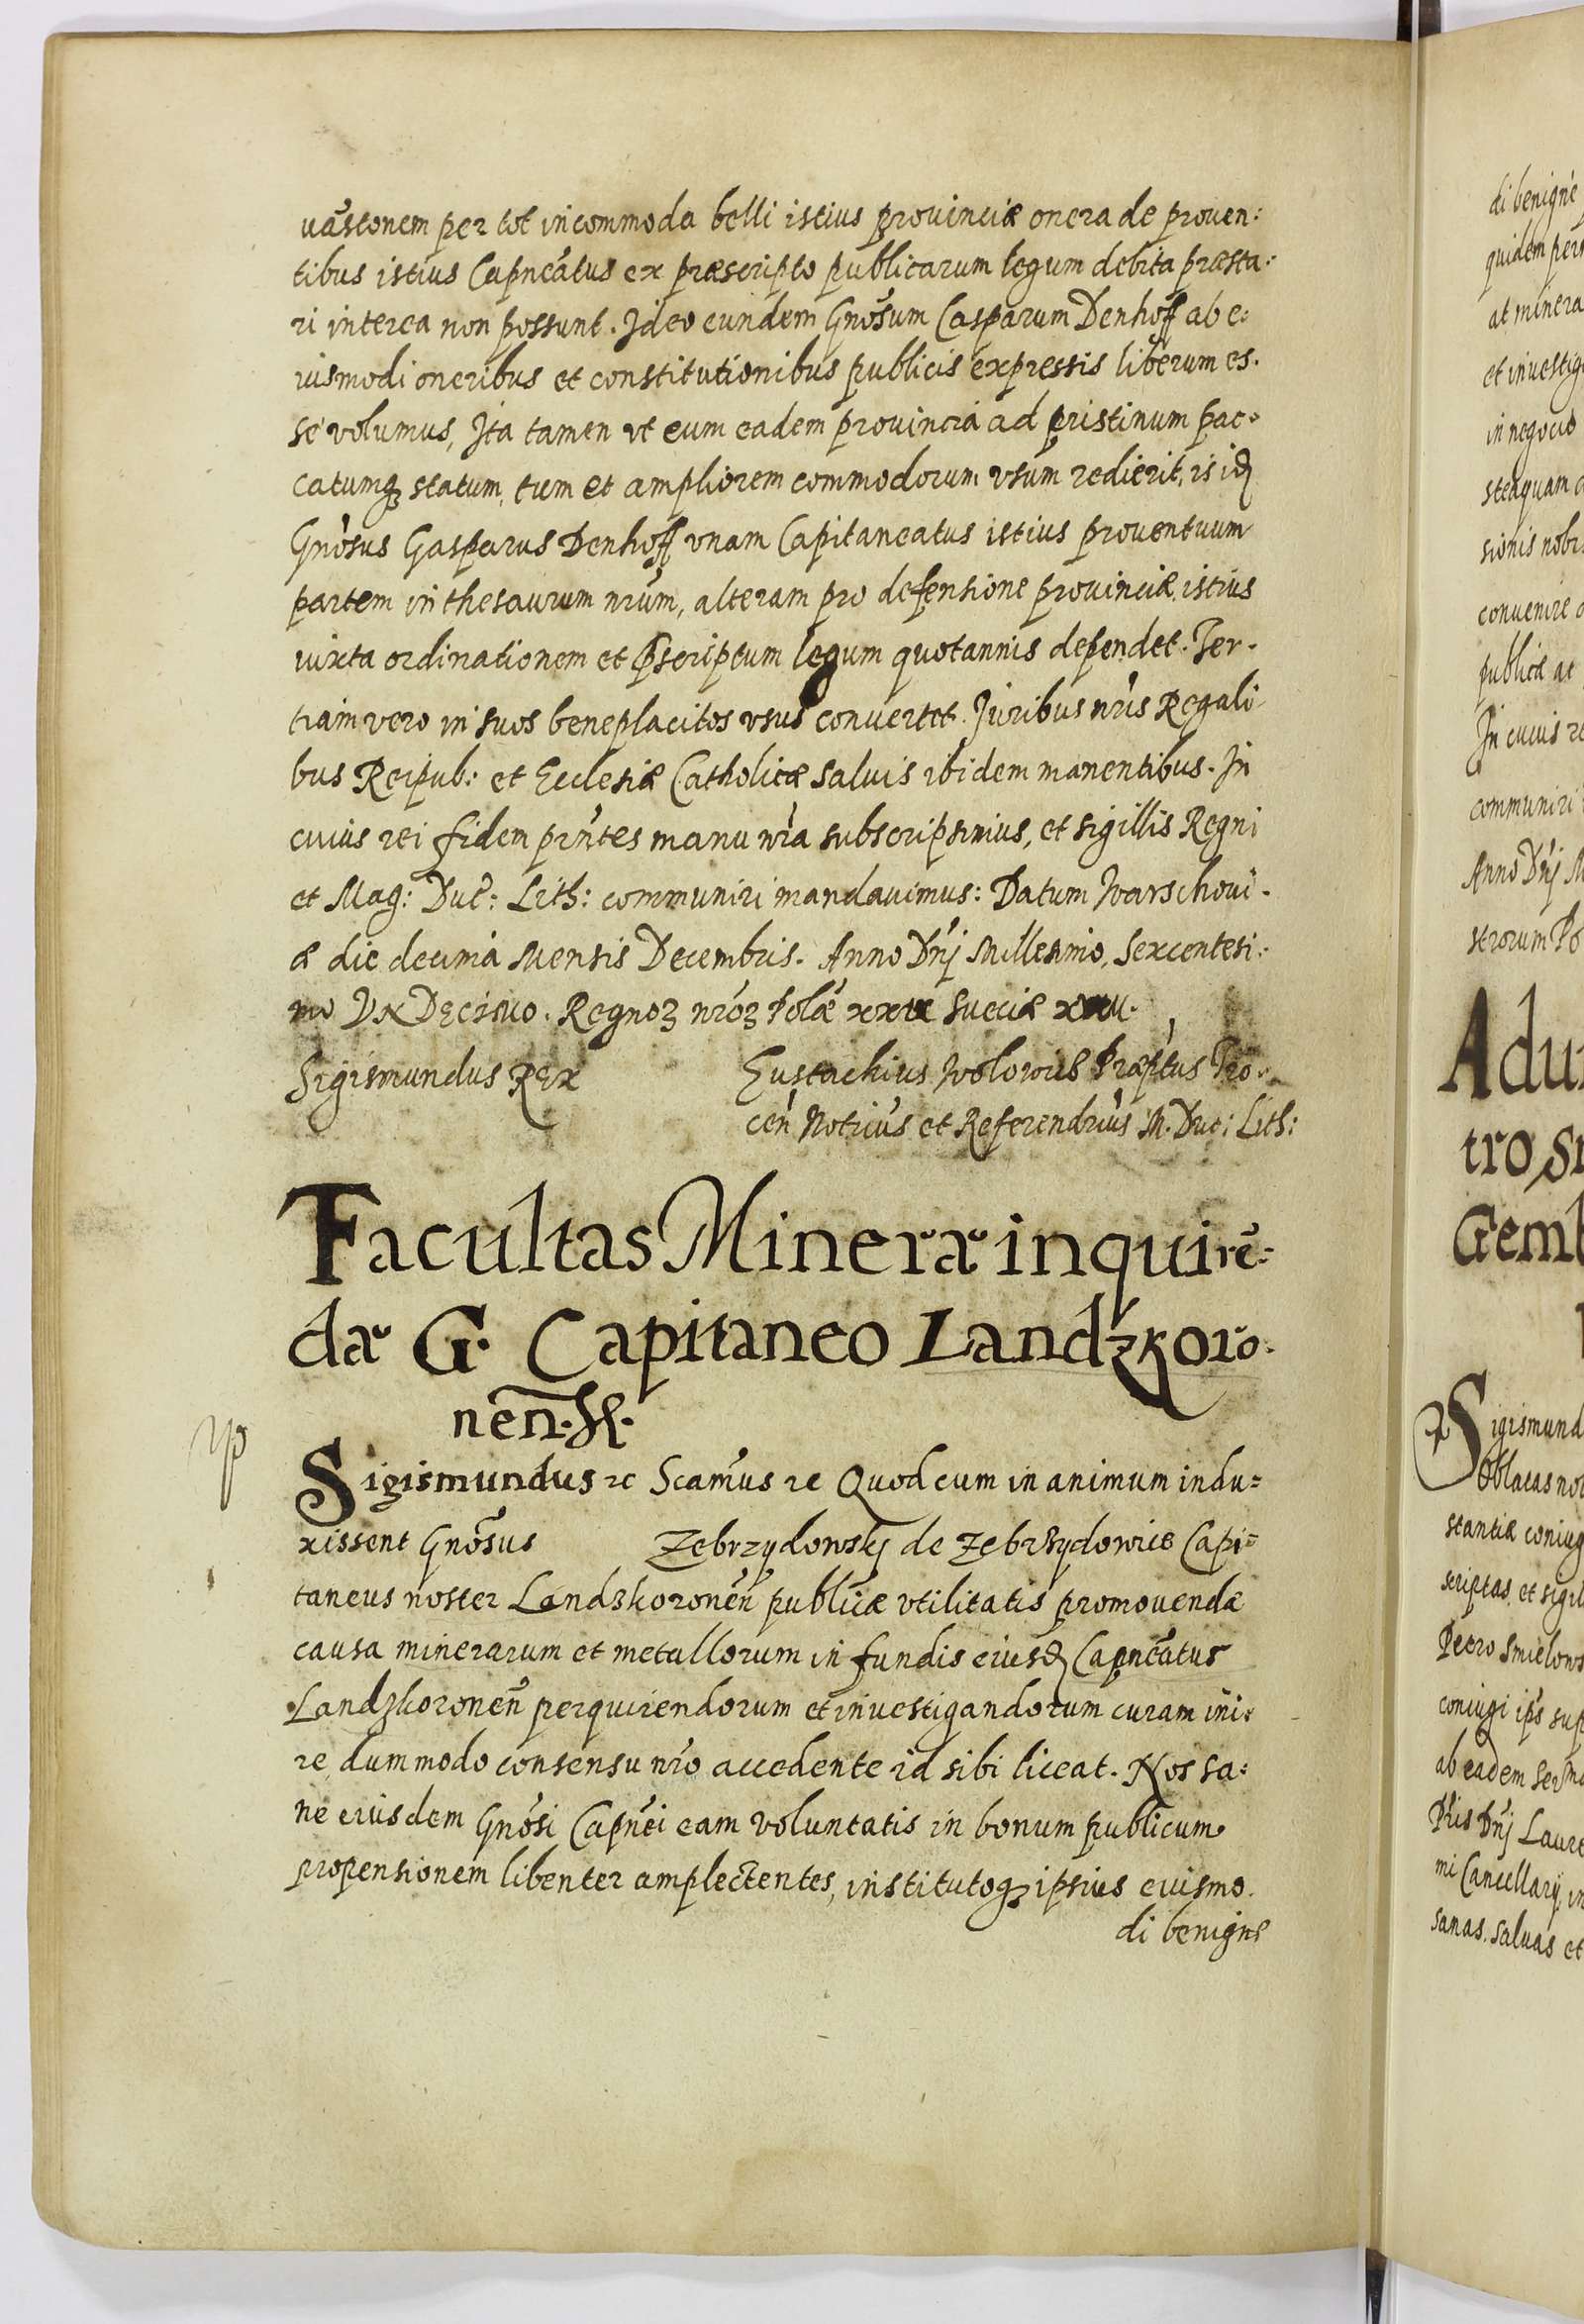 uãstonem per tot incommoda belli istius prouinciæ onera de prouen:
tibus istius Capneãtus ex præscripto publicarum legum debita præsta:
ri interea non possunt. Ideo eundem Gnõsum Casparum Denhoff ab e:
iusmodi oneribus et constitutionibus publicis expressis liberum es.
se volumus, Ita tamen vt cum eadem prouincia ad pristinum pac:
catumqz statum, tum et ampliorem commodorum vsum redierit, is id
Gnõsus Gasparus Denhoff vnam Capitaneatus istius prouentuum
partem in thesaurum nrũm, alteram pro defensione prouinciæ istius
iuxta ordinationem et pscriptum legum quotannis dependet. Ter.
tiam vero in suos beneplacitos vsus conuertet. Iuribus nrĩs Regali
bus Reipub: et Ecclesiæ Catholicæ saluis ibidem manentibus. In
cuius rei fidem prñtes manu nrã subscripsimus, et sigillis Regni
et Mag: Duc: Lith: communiri mandauimus: Datum Warschoui.
æ die decima Mensis Decembris. Anno Dñj Millesimo, Sexcentesi:
mo Vndecimo. Regnoz nrõz Polæ sueciæ
Sigismundus Rex
Eustachius Wolowic Præptus Tro.
ceñ Notriũs et Referendriũs M. Duc: Lith:
Facultas Mineræ inquirẽ:
dæ G. Capitaneo Landzkoro.
neñ.
Sigismundus rc Scamũs rc Quod cum in animum indu=
xissent Gnõsus Zebrzydowskj de Zebrzydowice Capi=
taneus noster Landzkoroneñ publicæ vtilitatis promouendæ
causa minerarum et metallorum in fundis eiusd Capneãtus
Landzkoroneñ perquirendorum et inuestigandorum curam ini:
re, dummodo consensu nrõ accedente id sibi liceat. Nos sa:
ne eiusdem Gnõsi Capnẽi eam voluntatis in bonum publicum
propensionem libenter amplectentes, institutoqz ipsius euismo.
di benigne
di benigne
quidem per
at minera
et inuestig
in negocio
steaquam
sionis nobi
conuenire
publicæ at
In cuius re
communiri
Anno Dñj M
strorum Po
Adu
tro, S
Gemb
Sigismund
Oblatas no
stantiæ coniug
scriptas, et sigil
Petro Smielows
coniugi ips sup
ab eadem
Dñj Laure
mi Cancellarij, in
sanas. saluas et